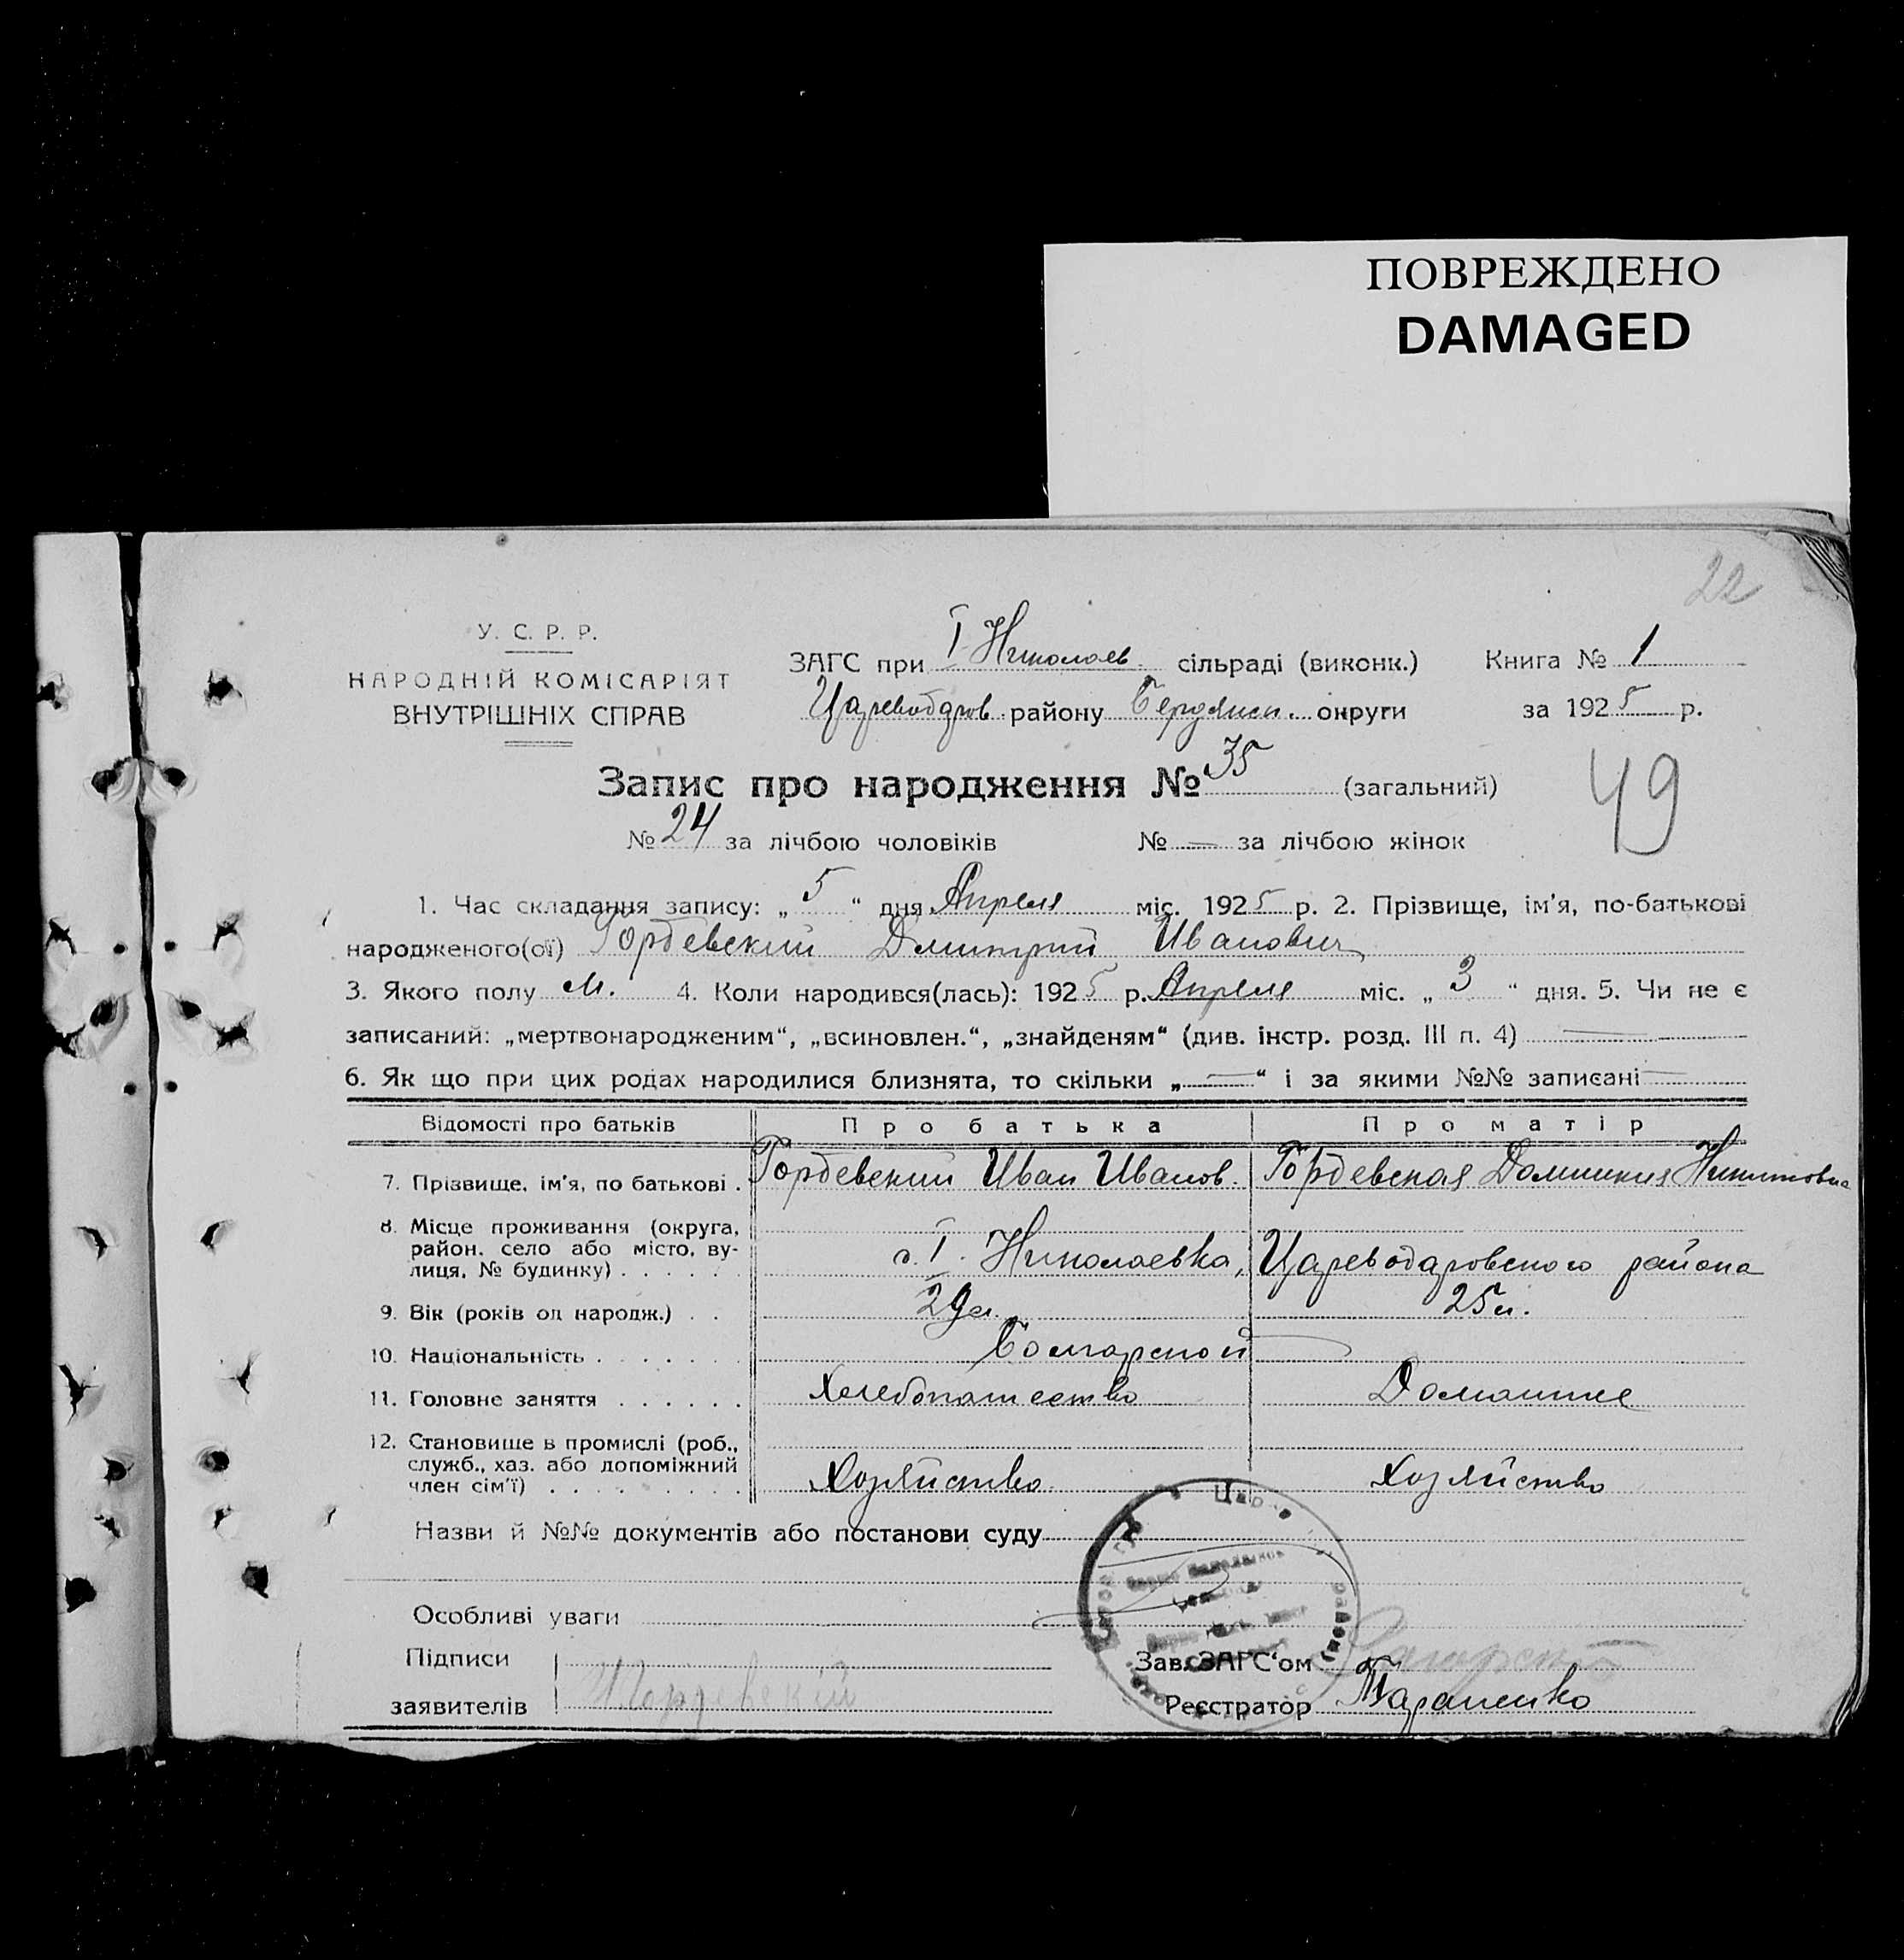 ПОВРЕЖДЕНО
DAMAGED
22
У. С. Р. Р.
НАРОДНІЙ КОМІСАРІЯТ
ВНУТРІШНІХ СПРАВ
ЗАГС при I Николаев. сільраді (виконк.)
Цареводаров. району Бердянск. округи
Книга № 1
за 1925 р.
Запис про народження № 35 (загальний)
49
№ 24 за лічбою чоловіків № — за лічбою жінок
1. Час складання запису: „5“ дня Апреля міс. 1925 р. 2. Прізвище, ім'я, по-батькові
народженого(ої) Гордевский Дмитрий Иванович
3. Якого полу м. 4. Коли народився(лась): 1925 р. Апреля міс. „3“ дня. 5. Чи не є
записаний: „мертвонародженим“, „всиновлен.“, „знайденям“ (див. інстр. розд. III п. 4) —
6. Як що при цих родах народилися близнята, то скільки „—“ і за якими №№ записані —
Відомості про батьків Про батька Про матір
7. Прізвище, ім'я, по батькові . Гордевский Иван Иванов. Гордевская Домникия Никитовна
8. Місце проживання (округа,
район, село або місто, ву-
лиця, № будинку) . . . . . с. I. Николаевка, Цареводаровского района
9. Вік (років од народж.) . . 29 л. 25 л.
10. Національність . . . . . . . Болгарской
11. Головне заняття . . . . . . Хлебопашество Домашнее
12. Становище в промислі (роб.,
служб., хаз. або допоміжний
член сім'ї) . . . . . . . . . Хозяйство Хозяйство
Назви й №№ документів або постанови суду
Особливі уваги
Підписи
заявителів
Зав. ЗАГС'ом
Реєстратор Тараненко